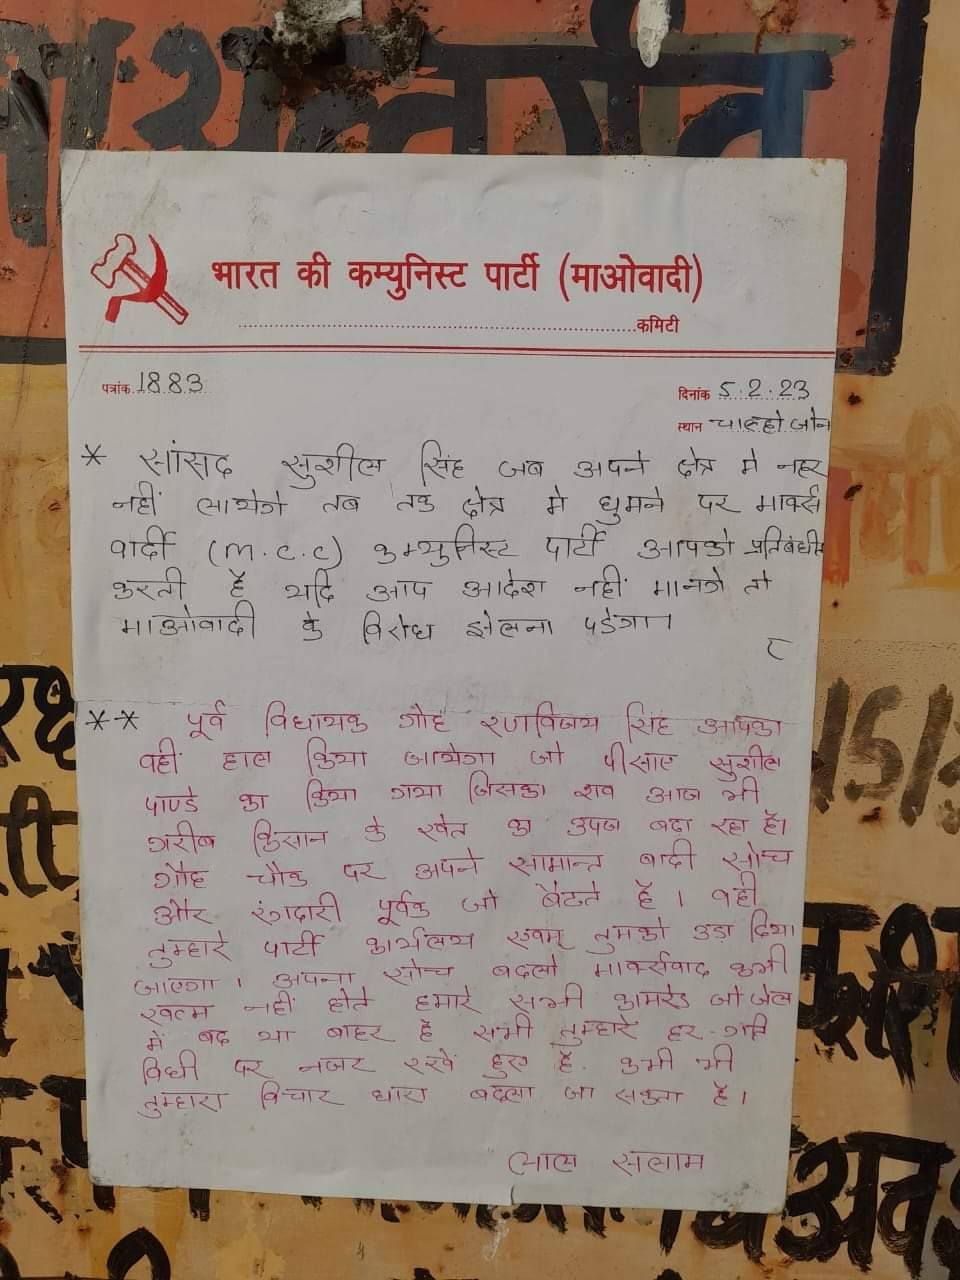 भारत की कम्युनिस्ट पार्टी (माओवादी)
कमिटी
पत्रांक 1883
दिनांक 5.2.23
स्थान चाल्हो जोन
* सांसद सुशील सिंह जब अपने क्षेत्र मे नहर
नहीं लायेगे तब तक क्षेत्र मे घुमने पर मार्क्स
वार्दी (m.c.c) कम्युनिस्ट पार्टी आपको प्रतिबंधीत
करती है यदि आप आदेश नहीं मानगे तो
माओवादी के विरोध झेलना पडेगा।
** पूर्व विधायक गोह रणविजय सिंह आपका
वहीं हाल किया जायेगा जो पीसाए सुशील
पाण्डे का किया गया जिसका शव आज भी
गरीब किसान के खेत का उपज बढा रहा है।
गोह चौक पर अपने सामान्त बादी सोच
और रंगदारी पूर्वक जो बैठते है। वही
तुम्हारे पार्टी कार्यलय एवम् तुमको उड़ा दिया
जाएगा। अपना सोच बदलो मार्क्सवाद कभी
खत्म नहीं होते हमारे सभी कामरेड जो जेल
में बद या बाहर है सभी तुम्हारे हर-गति
विधी पर नजर रखें हुए है. कभी भी
तुम्हारा विचार धारा बदला जा सकता है।
लाल सलाम